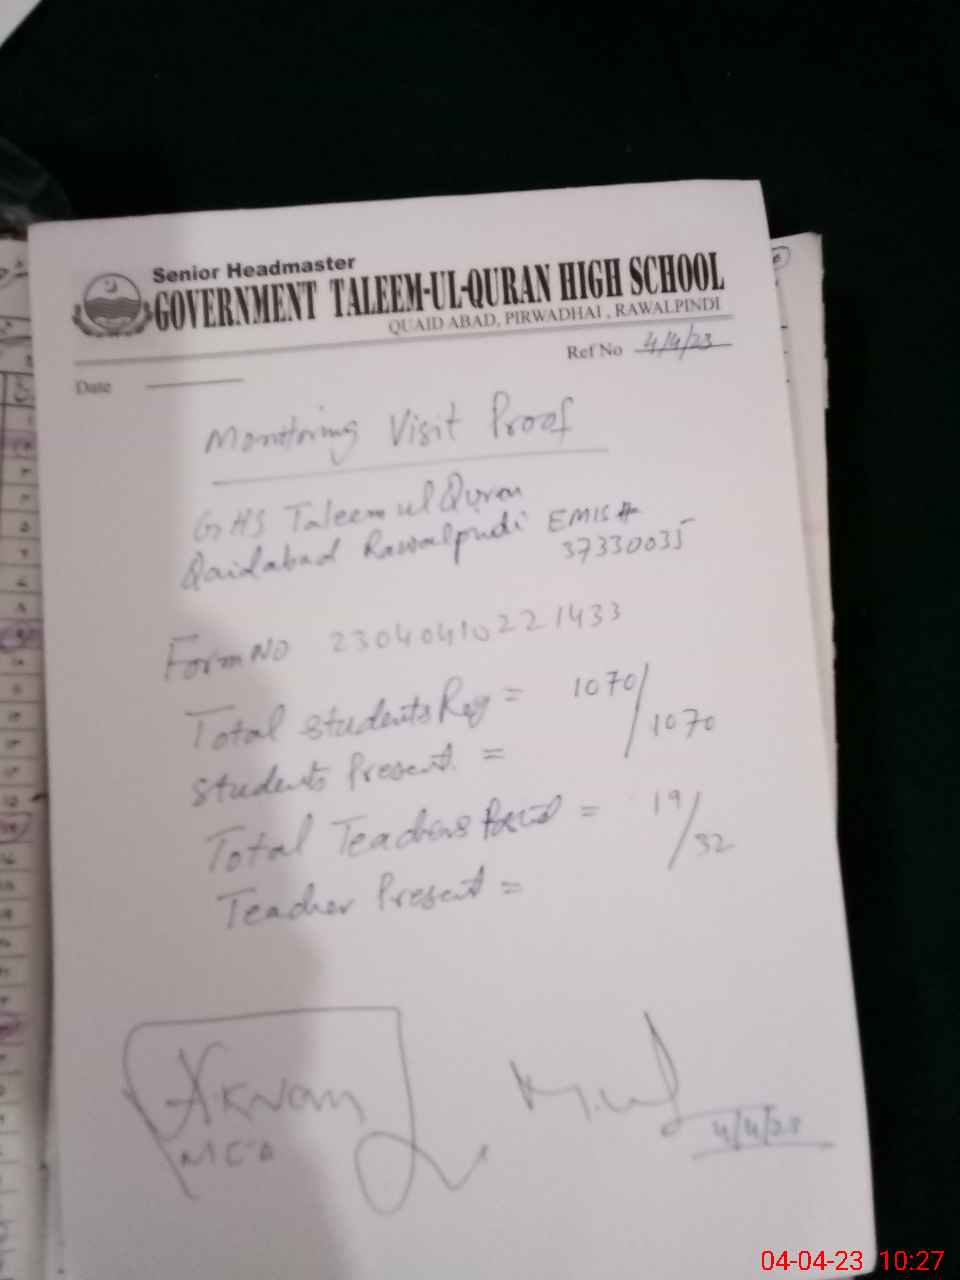 Senior Headmaster
GOVERNMENT TALEEM-UL-QURAN HIGH SCHOOL
QUAID ABAD, PIRWADHAI, RAWALPINDI
Ref No 4/4/23
Date
Monitoring Visit Proof
GHS Taleem ul Quran
Qaidabad Rawalpindi EMIS #
37330035
Form NO 23040410221433
Total students Reg = 1070/
Students Present = 1070
Total Teachers = 19/
Teacher Present = 32
MCA
4/4/23
04-04-23 10:27